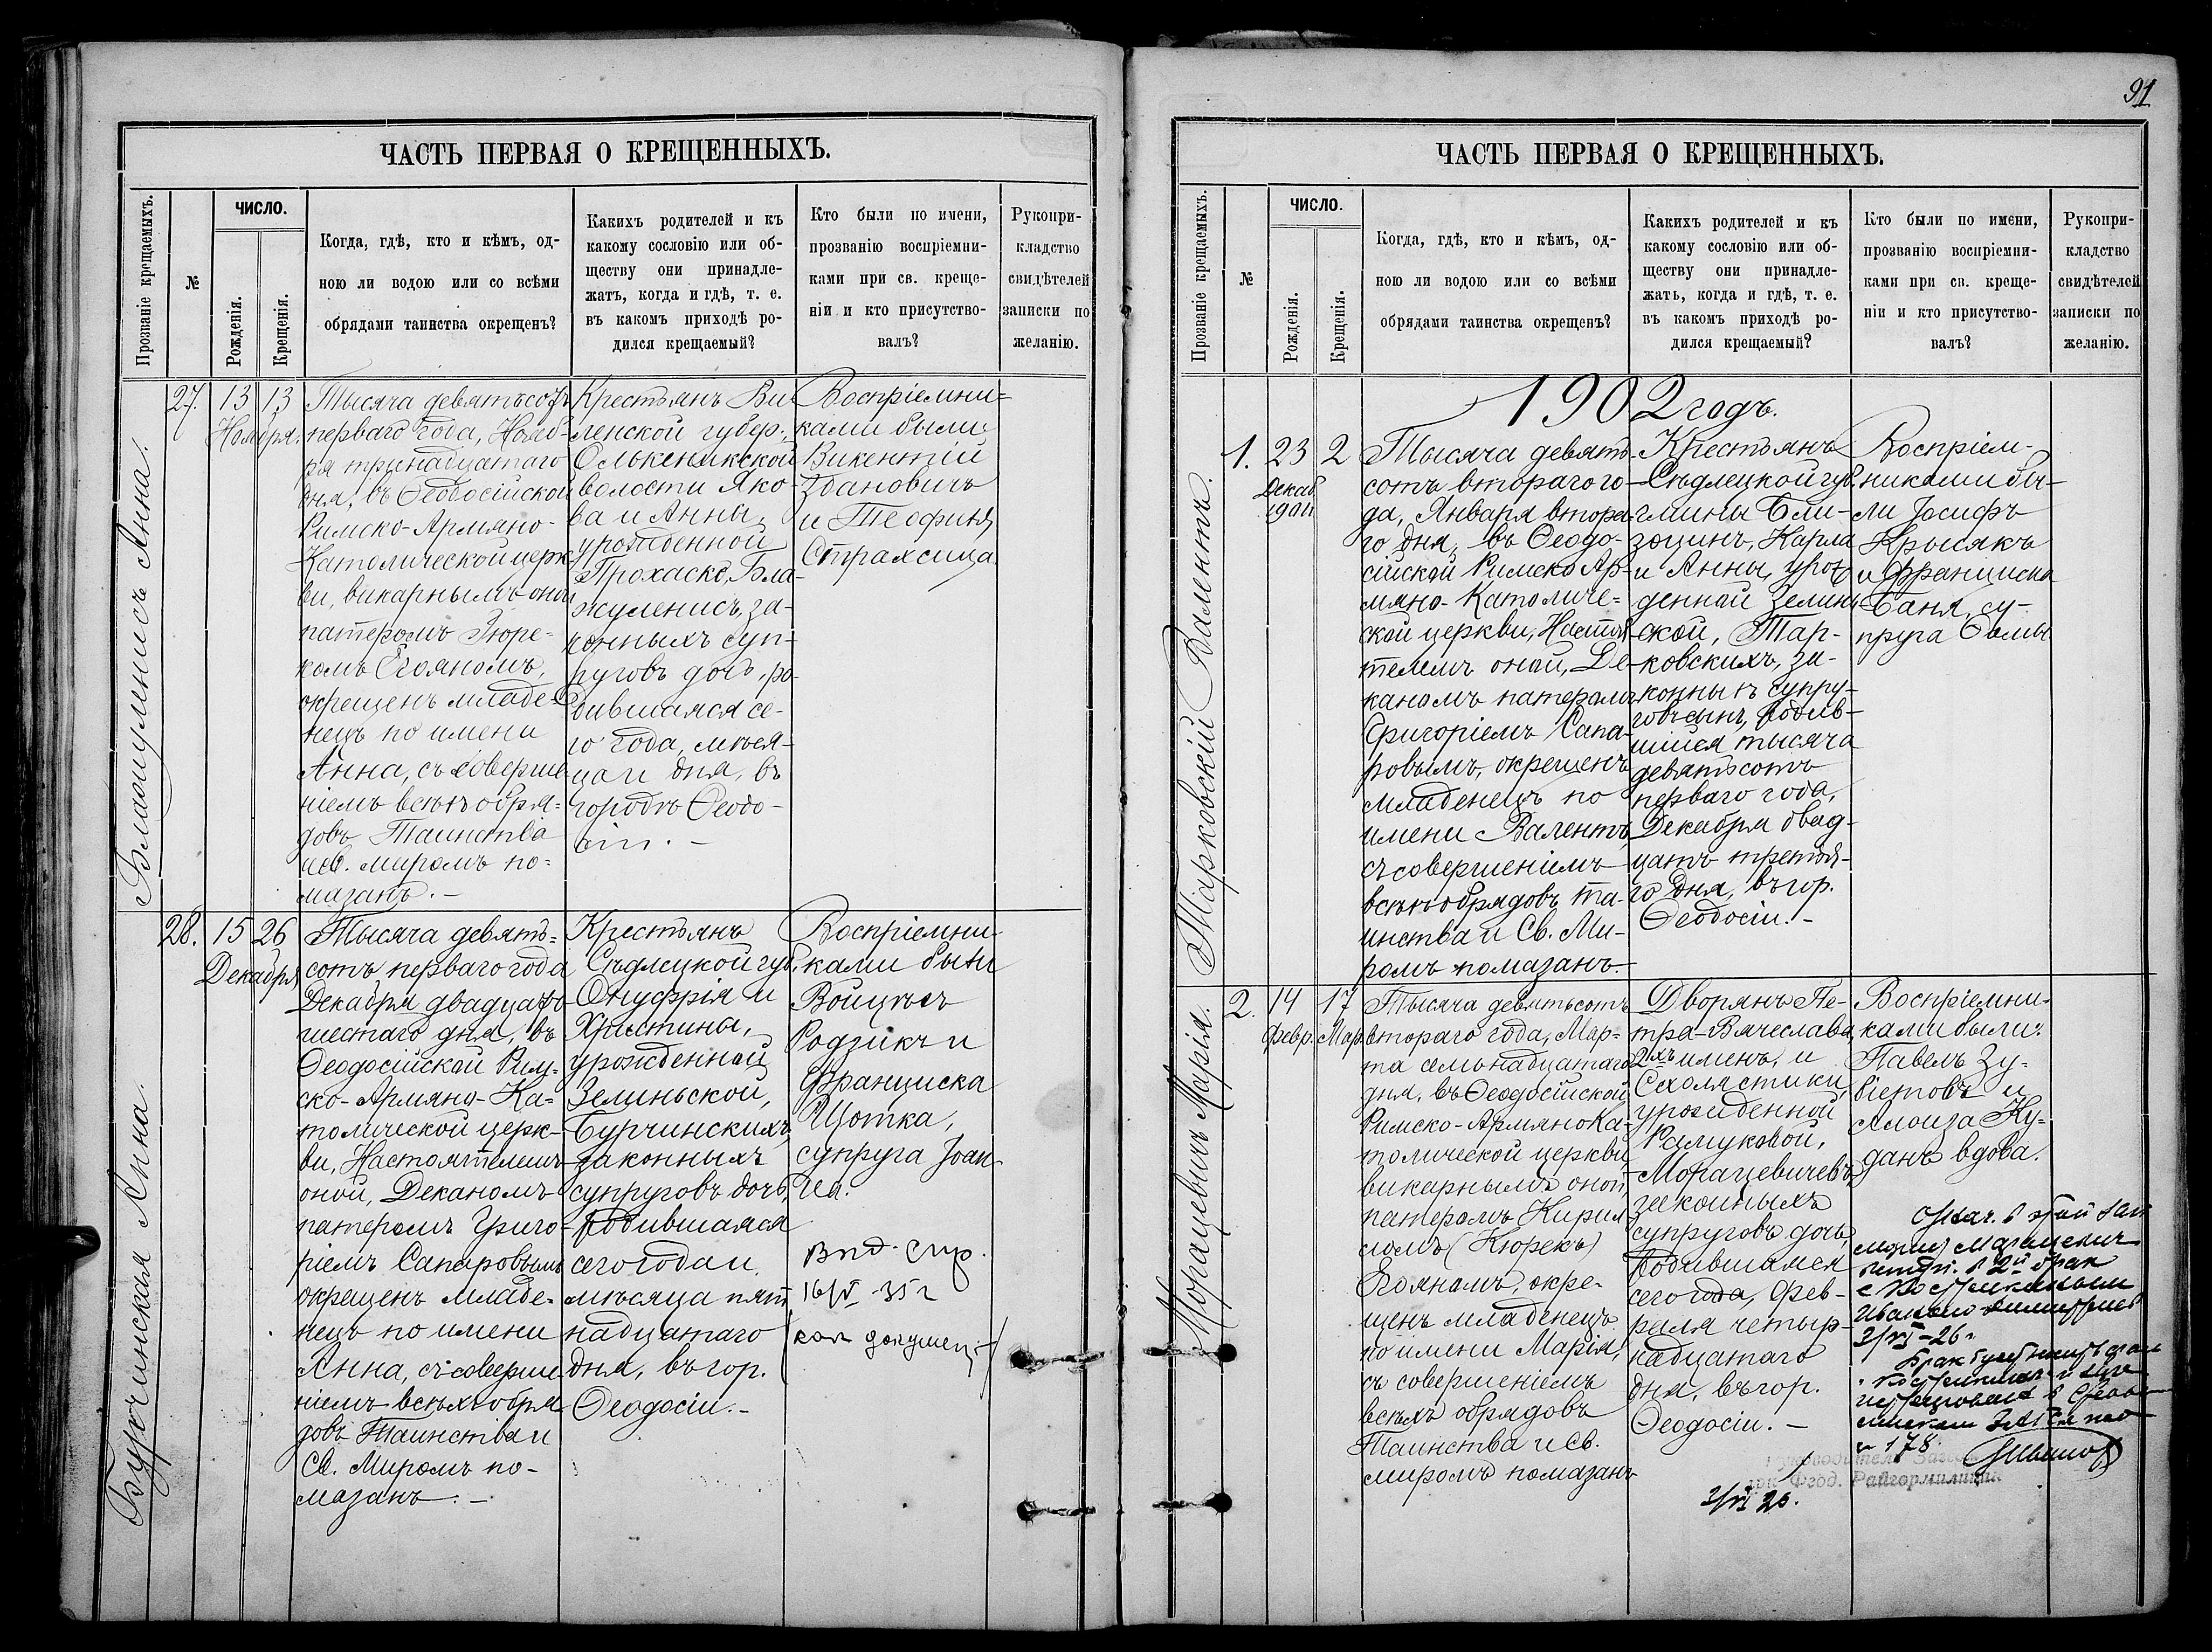 91
ЧАСТЬ ПЕРВАЯ О КРЕЩЕННЫХЪ.
Прозваніе крещаемыхъ.
№
ЧИСЛО.
Рожденія.
Крещенія.
Когда, гдѣ, кто и кѣмъ, од-
ною ли водою или со всѣми
обрядами таинства окрещенъ?
Какихъ родителей и къ
какому сословію или об-
ществу они принадле-
жатъ, когда и гдѣ, т. е.
въ какомъ приходѣ ро-
дился крещаемый?
Кто были по имени,
прозванію воспріемни-
ками при св. креще-
ніи и кто присутство-
валъ?
Рукопри-
кладство
свидѣтелей
записки по
желанію.
Блажуленисъ Анна.
27.
13 13
Ноября.
Тысяча девятьсотъ
перваго года, Нояб-
ря тринадцатаго
дня, въ Ѳеодосійской
Римско-Армяно-
Католической церк-
ви, викарнымъ оной
патеромъ Кюре-
комъ Егояномъ,
окрещенъ младе-
нецъ по имени
Анна, съ соверше-
ніемъ всѣхъ обря-
довъ Таинства
и Св. миромъ по-
мазанъ.-
Крестьянъ Ви-
ленской губер.,
Олькеникской
волости Яко-
ва и Анны,
урожденной
Прохаско, Бла-
жуленисъ, за-
конныхъ суп-
руговъ дочь, ро-
дившаяся се-
го года, мѣся-
ца и дня, въ
городѣ Ѳеодо-
сіи.-
Воспріемни-
ками были:
Викентій
Здановичъ
и Теофиня
Страхсица.
Бурчинская Анна.
28.
15 26
Декабря
Тысяча девять-
сотъ перваго года
Декабря двадцать
шестаго дня, въ
Ѳеодосійской Рим-
ско-Армяно-Ка-
толической церк-
ви, Настоятелемъ
оной, Деканомъ
патеромъ Григо-
ріемъ Сапаровымъ
окрещенъ младе-
нецъ по имени
Анна, съ соверше-
ніемъ всѣхъ обря-
довъ Таинства и
Св. Миромъ по-
мазанъ.-
Крестьянъ
Сѣдлецкой губ.
Онуфрія и
Христины,
урожденной
Зелиньской,
Бурчинскихъ
законныхъ
супруговъ дочь,
родившаяся
сего года и
мѣсяца пят-
надцатаго
дня, въ гор.
Ѳеодосіи.-
Воспріемни-
ками были
Войцѣхъ
Родзикъ и
Франциска
Щотка,
супруга Іоан-
на.
Выд. спр.
16/V 35 г
ЧАСТЬ ПЕРВАЯ О КРЕЩЕННЫХЪ.
Прозваніе крещаемыхъ.
№
ЧИСЛО.
Рожденія.
Крещенія.
Когда, гдѣ, кто и кѣмъ, од-
ною ли водою или со всѣми
обрядами таинства окрещенъ?
Какихъ родителей и къ
какому сословію или об-
ществу они принадле-
жатъ, когда и гдѣ, т. е.
въ какомъ приходѣ ро-
дился крещаемый?
Кто были по имени,
прозванію воспріемни-
ками при св. креще-
ніи и кто присутство-
валъ?
Рукопри-
кладство
свидѣтелей
записки по
желанію.
1902 годъ.
Тарковскій Валентъ.
1.
23 2
Декаб
1901
Тысяча девять-
сотъ втораго го-
да, Января втора-
го дня, въ Ѳеодо-
сійской Римско Ар-
мяно-Католиче-
ской церкви, Настоя-
телемъ оной, Де-
каномъ патеромъ
Григоріемъ Сапа-
ровымъ, окрещенъ
младенецъ по
имени Валентъ,
съ совершеніемъ
всѣхъ обрядовъ та-
инства и Св. Ми-
ромъ помазанъ.-
Крестьянъ
Сѣдлецкой губ.
гмины Бли-
зоцинъ, Карла
и Анны, урож-
денной Зелинь-
ской, Тар-
ковскихъ, за-
конныхъ супру-
говъ сынъ, родив-
шійся тысяча
девятьсотъ
перваго года,
Декабря двад-
цать третья-
го дня, въ гор.
Ѳеодосіи.-
Воспріем-
никами бы-
ли Іосифъ
Крысякъ
и Франциска
Баня, су-
пруга Ѳомы
Морацевичъ Марія.
2.
14 17
Февр. Мар.
Тысяча девятьсотъ
втораго года, Мар-
та семьнадцатаго
дня, въ Ѳеодосійской
Римско-Армяно Ка-
толической церкви
викарнымъ оной,
патеромъ Кирил-
ломъ (Кюрекъ)
Егояномъ, окре-
щенъ младенецъ
по имени Марія,
съ совершеніемъ
всѣхъ обрядовъ
Таинства и Св.
миромъ помазанъ
Дворянъ Пе-
тра-Вячеслава,
2хъ именъ, и
Схоластики,
урожденной
Рамуковой,
Морацевичевъ,
законныхъ
супруговъ дочь,
родившаяся
сего года, Фев-
раля четыр-
надцатаго
дня, въ гор.
Ѳеодосіи.-
Воспріемни-
ками были:
Павелъ Зу-
біетовъ и
Алоиза Ку-
данъ вдова.
2/VI-26 г
№ 178.
Феод. Райгормилиции
2/VI 26.